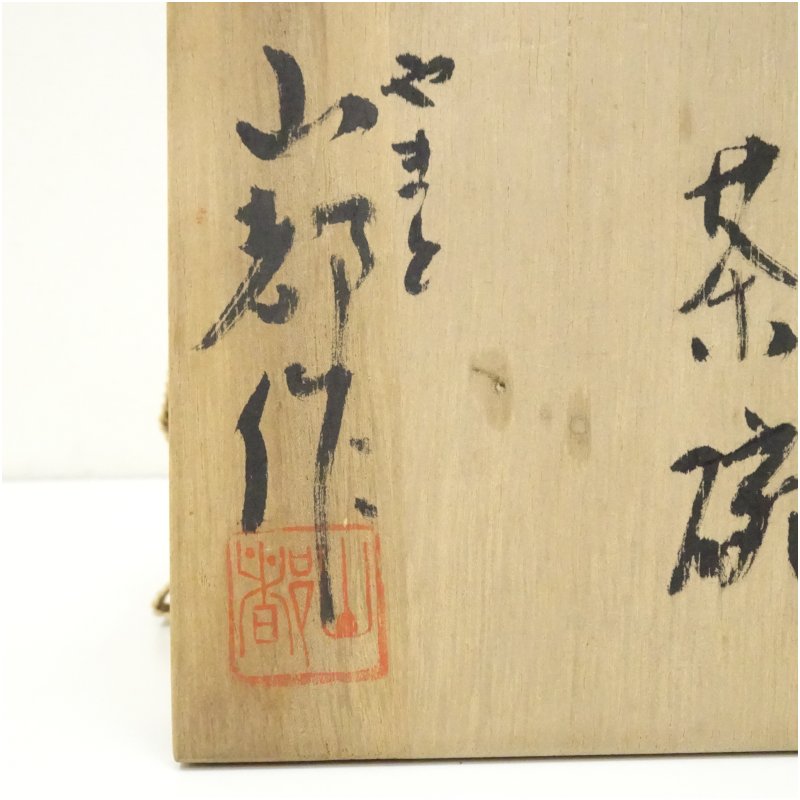 茶碗
やまと
山都作
山都